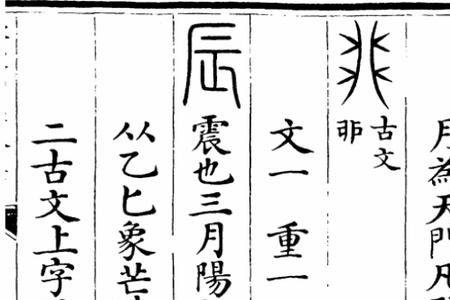 月為天門凡
古文
卯
文一 重一
辰 震也三月陽
从乙匕象芒
二古文上字